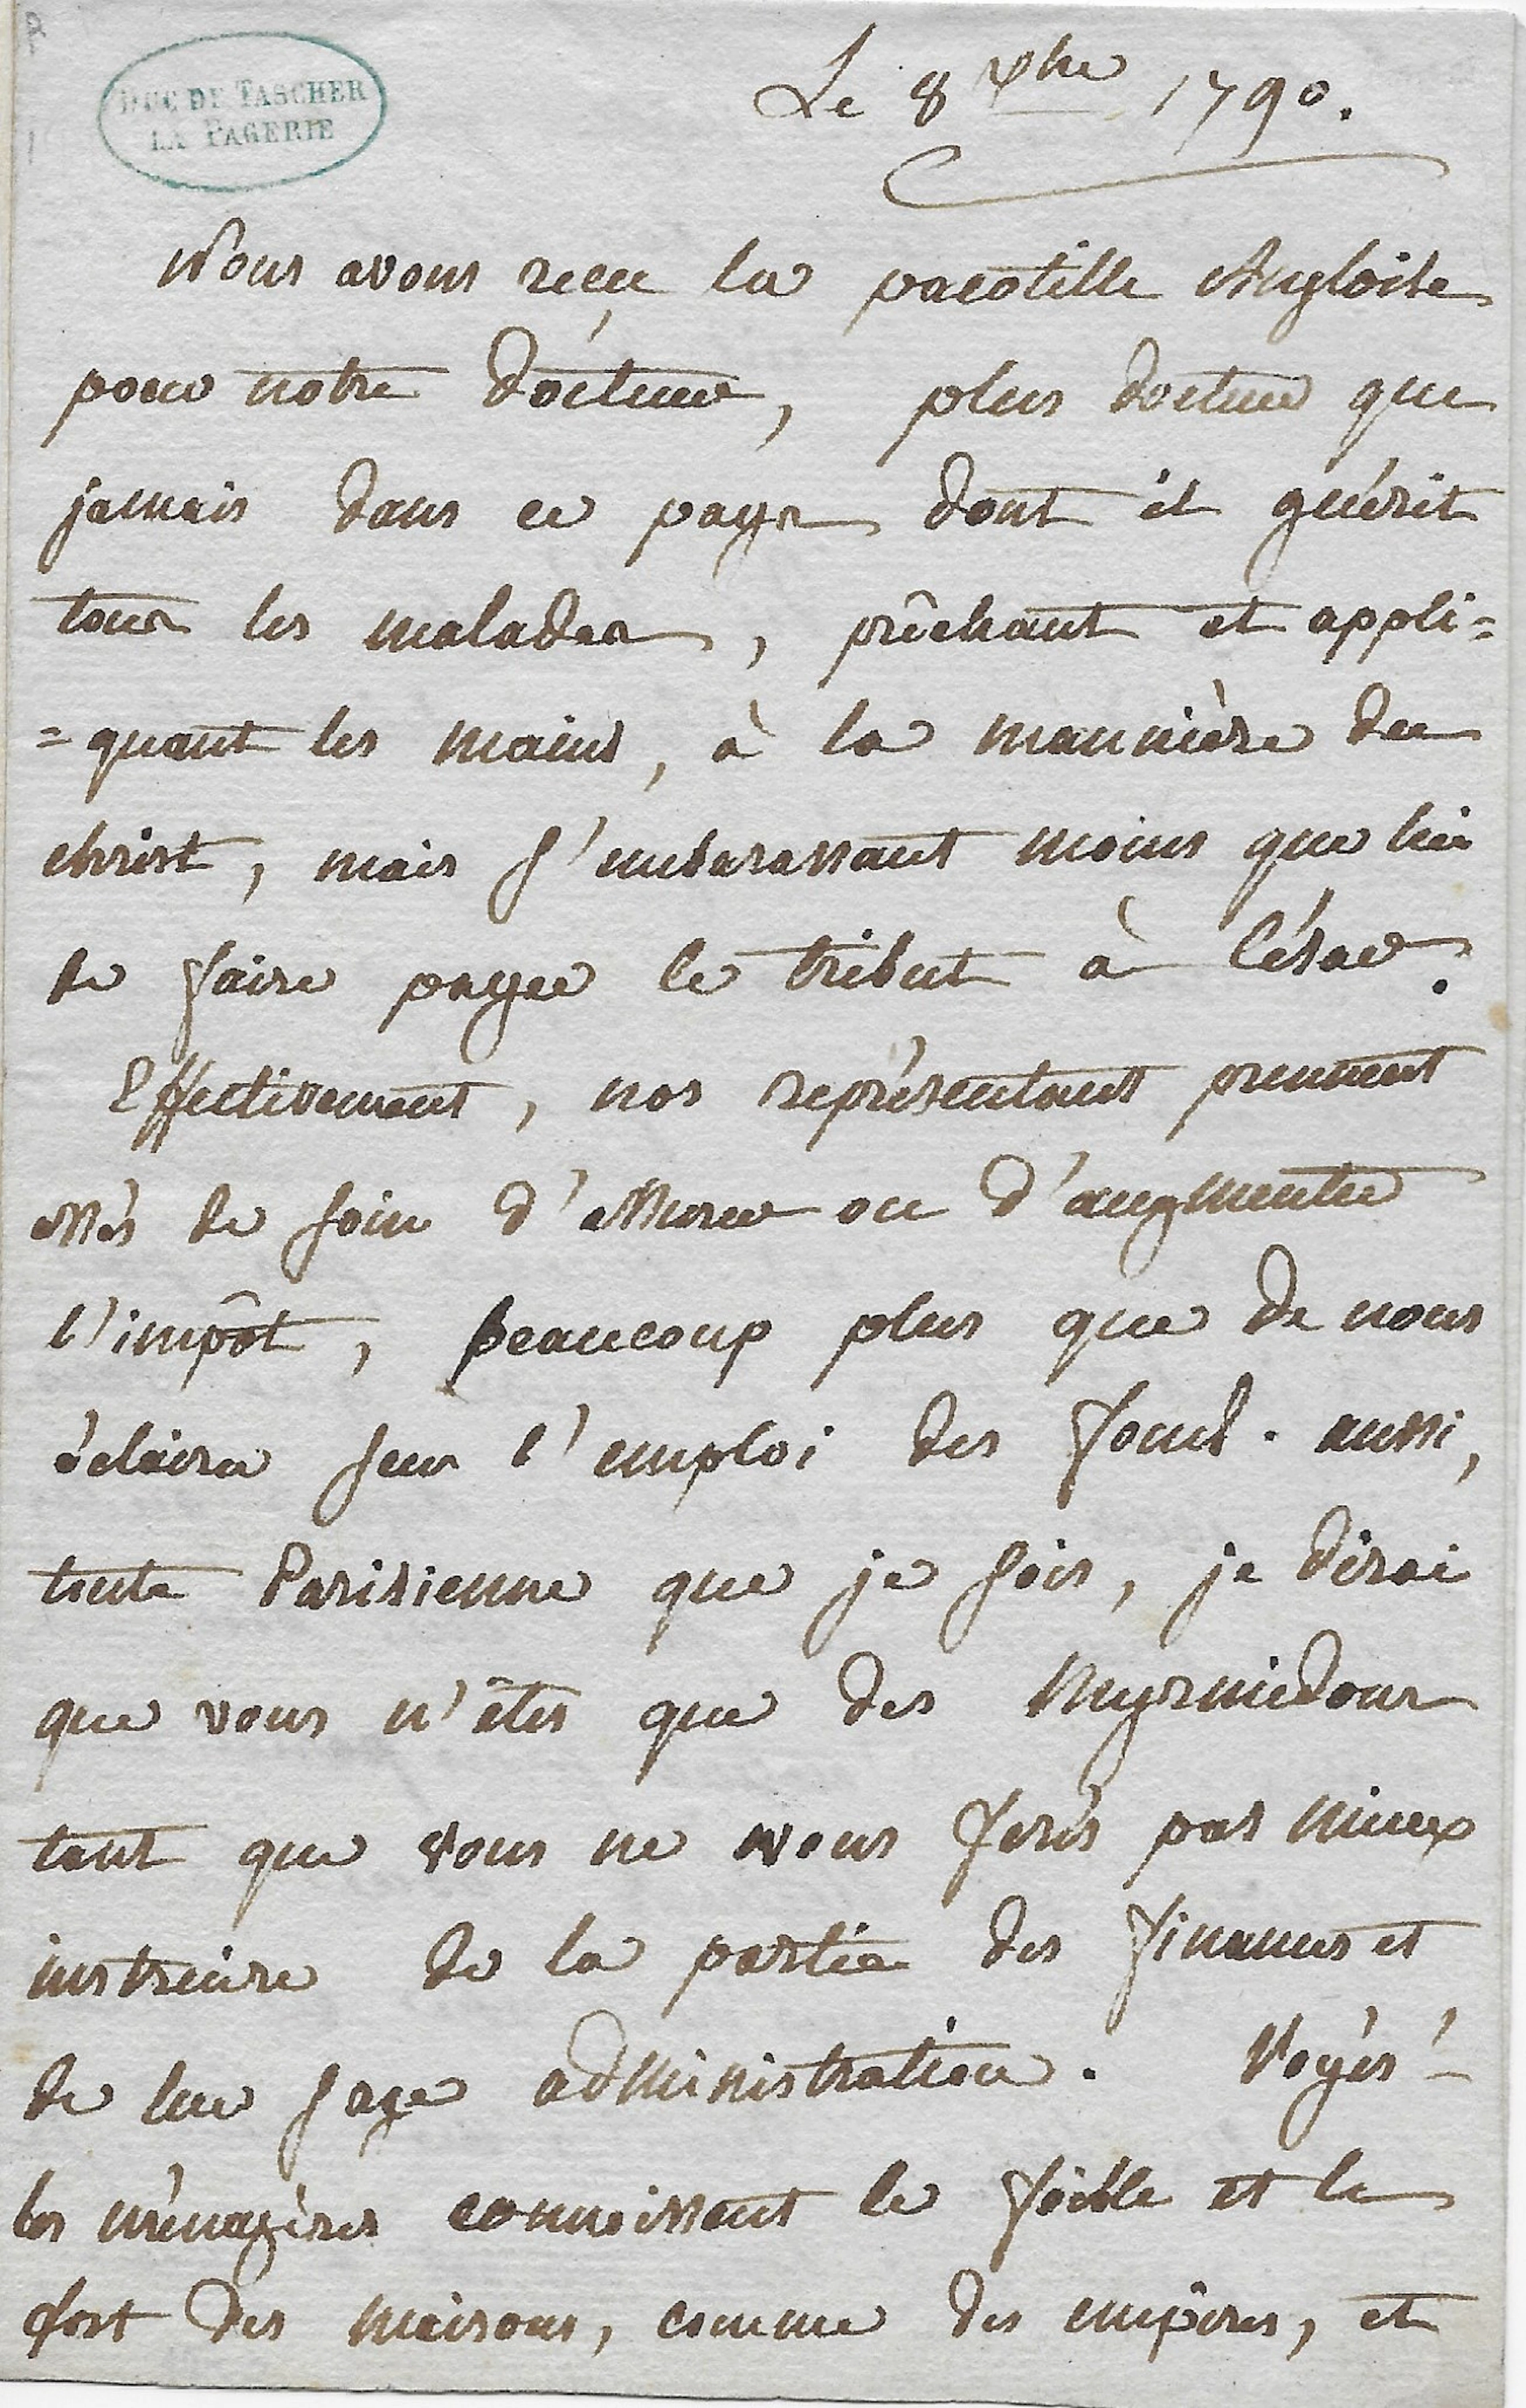 DUC DE TASCHER
LA PAGERIE
Le 8 xbre 1790.
Nous avons reçu la pacotille Angloise
pour notre docteur, plus docteur que
jamais dans ce pays dont il guérit
tous les malades, prêchant et appli=
=quant les mains, à la mannière du
christ, mais s'embarassant moins que lui
de faire payer le tribut à César.
Effectivement, nos représentants prennent
assés de soin d'assurer ou d'augmenter
l'impôt, beaucoup plus que de nous
éclairer sur l'emploi des fonds. aussi,
toute Parisienne que je sois, je dirai
que vous n'êtes que des Myrmidons
tant que vous ne nous ferés pas mieux
instruire de la partie des finances et
de leur sage administration. Voyés-
les ménagères connoissent le foible et le
fort des maisons, comme des empires, et